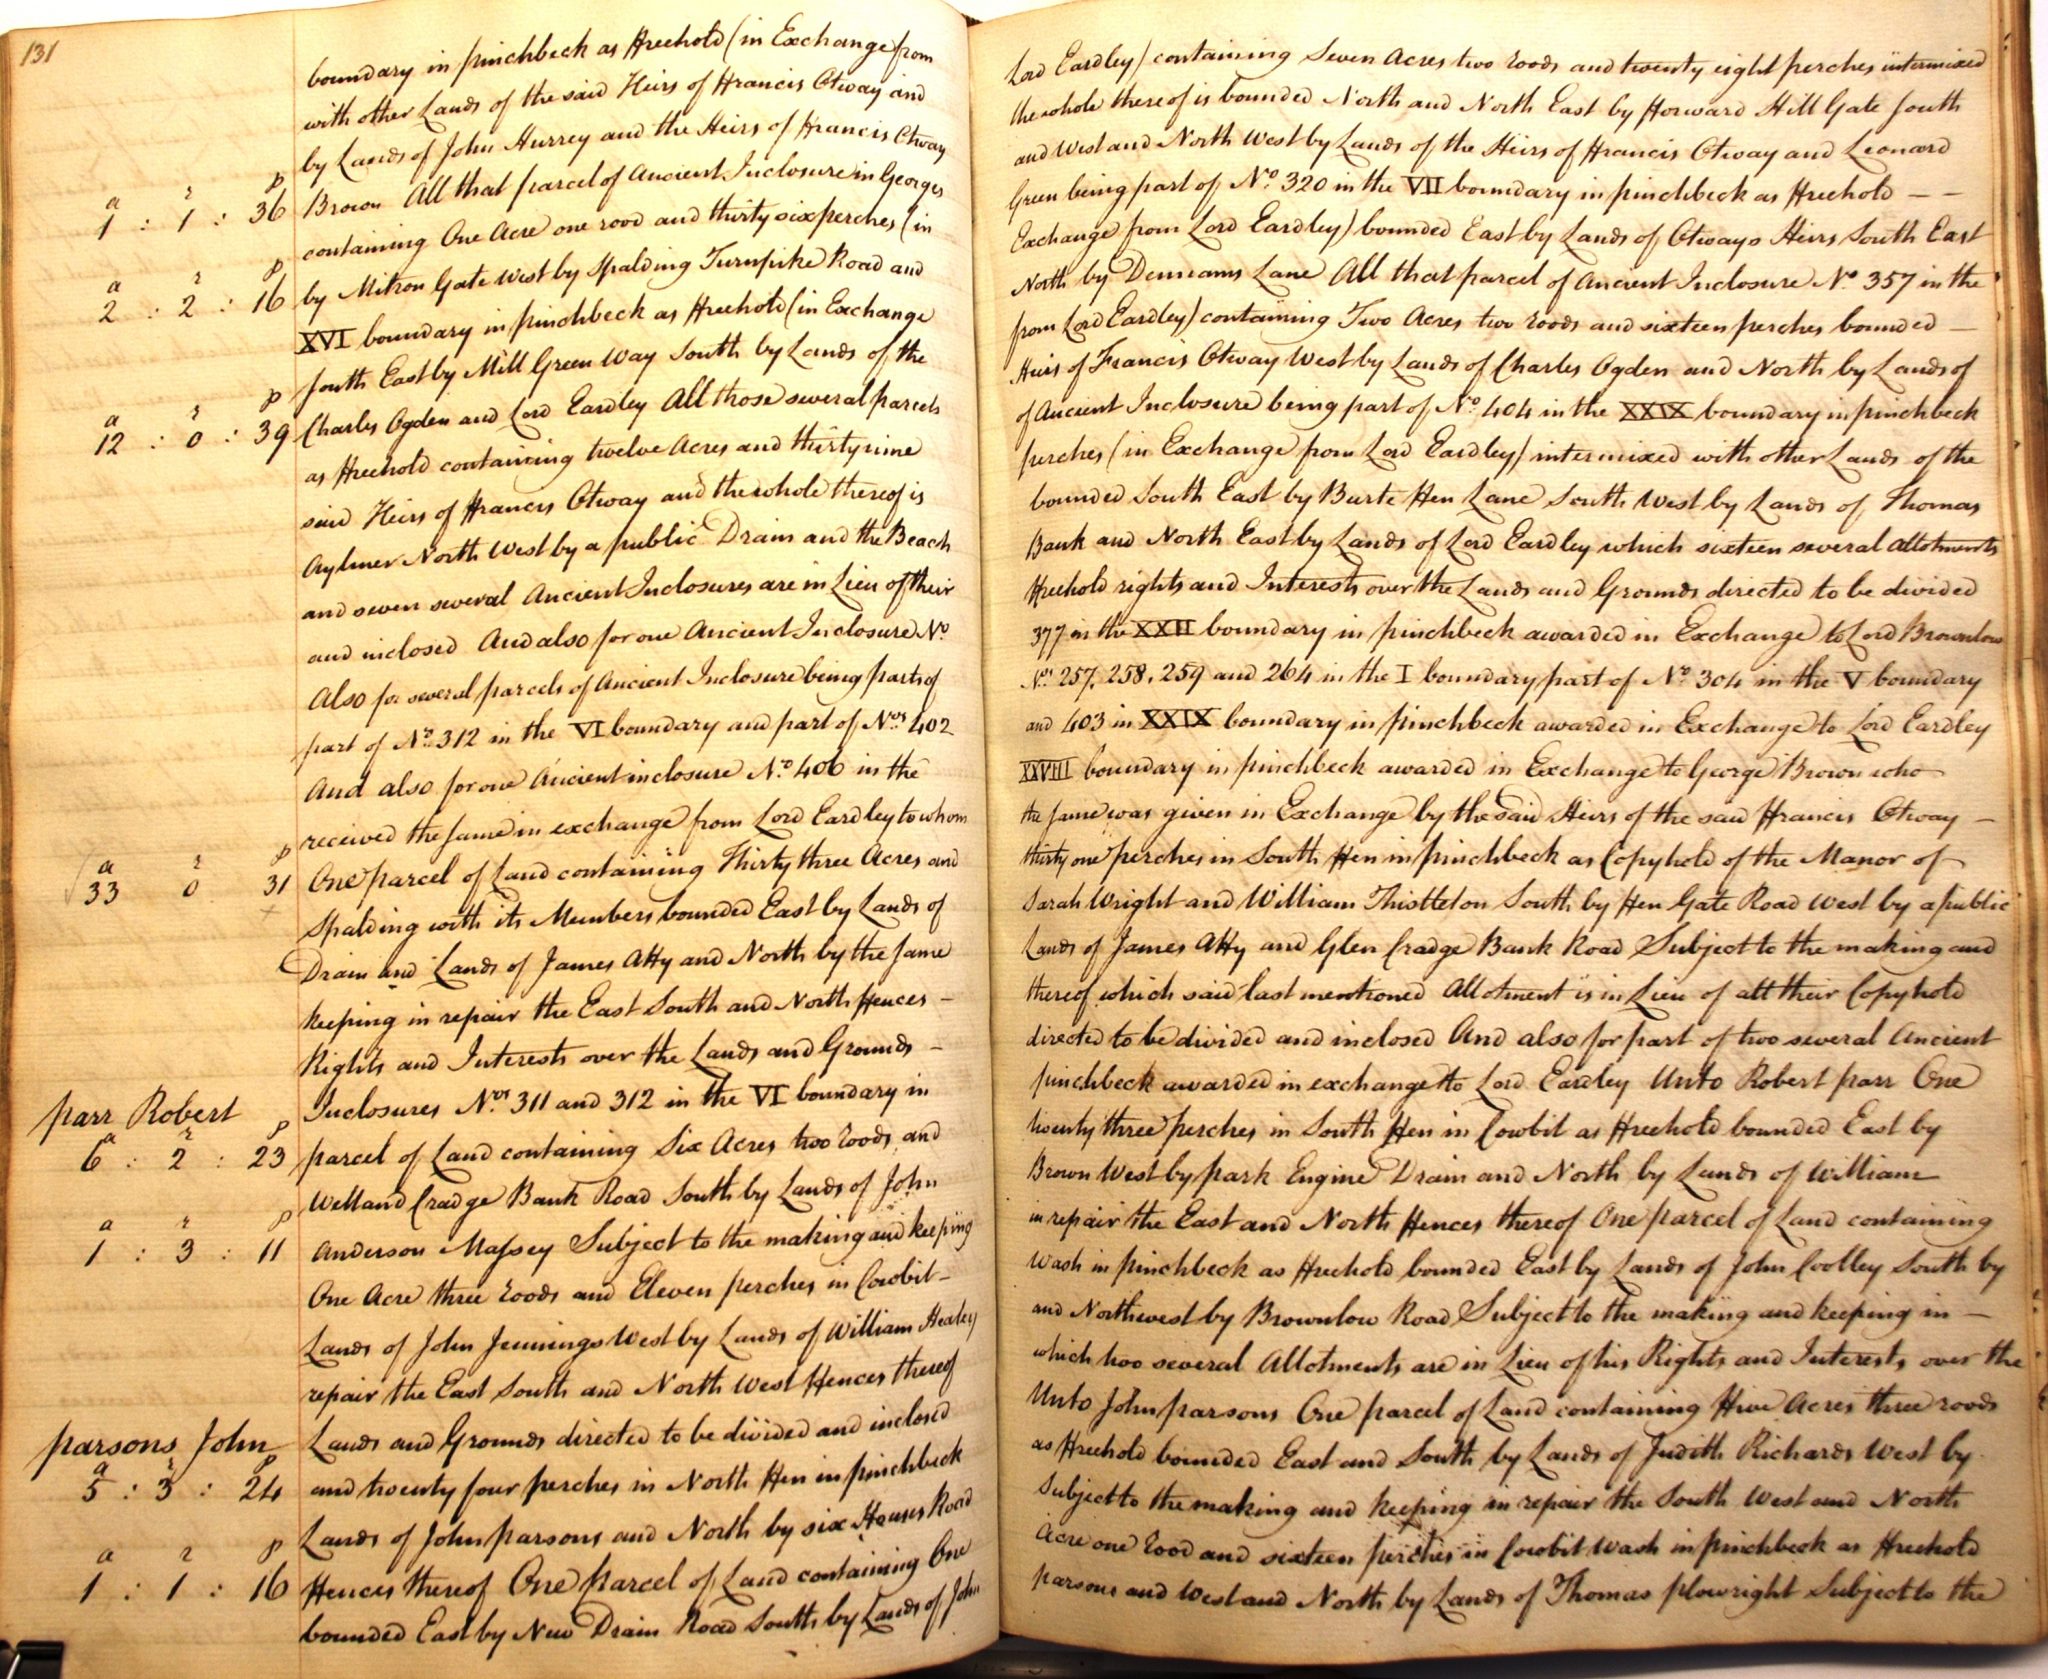 131
boundary in pinchbeck as Freehold (in Exchange from Lord Eardley) containing Seven Acres two roods and twenty eight perches intermixed
with other Lands of the said Heirs of Francis Otway and the whole thereof is bounded North and North East by Forward Hill Gate South
by Lands of John Hurrey and the Heirs of Francis Otway and West and North West by Lands of the Heirs of Francis Otway and Leonard
a r p
1 : 1 : 36
Brown All that parcel of Ancient Inclosure in Georges Green being part of No. 320 in the VII boundary in pinchbeck as Freehold — —
containing One Acre one rood and thirty six perches (in Exchange from Lord Eardley) bounded East by Lands of Otways Heirs South East
a r p
2 : 2 : 16
by Mitron Gate West by Spalding Turnpike Road and North by Lane All that parcel of Ancient Inclosure No. 357 in the
XVI boundary in pinchbeck as Freehold (in Exchange from Lord Eardley) containing Two Acres two roods and sixteen perches bounded —
South East by Mill Green Way South by Lands of the Heirs of Francis Otway West by Lands of Charles Ogden and North by Lands of
a r p
12 : 0 : 39
Charles Ogden and Lord Eardley All those several parcels of Ancient Inclosure being part of No. 404 in the XXIX boundary in pinchbeck
as Freehold containing twelve Acres and thirty nine perches (in Exchange from Lord Eardley) intermixed with other Lands of the
said Heirs of Francis Otway and the whole thereof is bounded South East by Burte Fen Lane South West by Lands of Thomas
Aylmer North West by a public Drain and the Beach Bank and North East by Lands of Lord Eardley which sixteen several Allotments
and seven several Ancient Inclosures are in Lieu of their Freehold rights and Interests over the Lands and Grounds directed to be divided
and inclosed And also for one Ancient Inclosure No. 377 in the XXII boundary in pinchbeck awarded in Exchange to Lord Brownlow
Also for several parcels of Ancient Inclosure being parts of Nos. 257. 258. 259 and 264 in the I boundary part of No. 304 in the V boundary
part of No. 312 in the VI boundary and part of Nos. 402 and 403 in XXIX boundary in pinchbeck awarded in Exchange to Lord Eardley
And also for one Ancient inclosure No. 406 in the XXVIII boundary in pinchbeck awarded in Exchange to George Brown who
received the same in exchange from Lord Eardley to whom the same was given in Exchange by the said Heirs of the said Francis Otway —
a r p
33 0 31
One parcel of Land containing Thirty three Acres and thirty one perches in South Fen in pinchbeck as Copyhold of the Manor of
Spalding with its Members bounded East by Lands of Sarah Wright and William Thistleton South by Fen Gate Road West by a public
Drain and Lands of James Atty and North by the same Lands of James Atty and Glen Cradge Bank Road Subject to the making and
keeping in repair the East South and North Fences — thereof which said last mentioned Allotment is in Lieu of all their Copyhold
Rights and Interests over the Lands and Grounds — directed to be divided and inclosed And also for part of two several Ancient
Parr Robert
Inclosures Nos. 311 and 312 in the VI boundary in pinchbeck awarded in exchange to Lord Eardley Unto Robert parr One
a r p
6 : 2 : 23
parcel of Land containing Six Acres two roods and twenty three perches in South Fen in Cowbit as Freehold bounded East by
Welland Cradge Bank Road South by Lands of John Brown West by park Engine Drain and North by Lands of William
a r p
1 : 3 : 11
Anderson Massey Subject to the making and keeping in repair the East and North Fences thereof One parcel of Land containing
One Acre three roods and Eleven perches in Cowbit — Wash in pinchbeck as Freehold bounded East by Lands of John Coolley South by
Lands of John Jennings West by Lands of William Healey and Northwest by Brownlow Road Subject to the making and keeping in —
repair the East South and North West Fences thereof which two several Allotments are in Lieu of his Rights and Interests over the
Parsons John
Lands and Grounds directed to be divided and inclosed Unto John parsons One parcel of Land containing Five Acres three roods
a r p
5 : 3 : 24
and twenty four perches in North Fen in pinchbeck as Freehold bounded East and South by Lands of Judith Richards West by
Lands of John parsons and North by six Houses Road Subject to the making and keeping in repair the South West and North
a r p
1 : 1 : 16
Fences thereof One parcel of Land containing One Acre one rood and sixteen perches in Cowbit Wash in pinchbeck as Freehold
bounded East by New Drain Road South by Lands of John parsons and West and North by Lands of Thomas plowright Subject to the